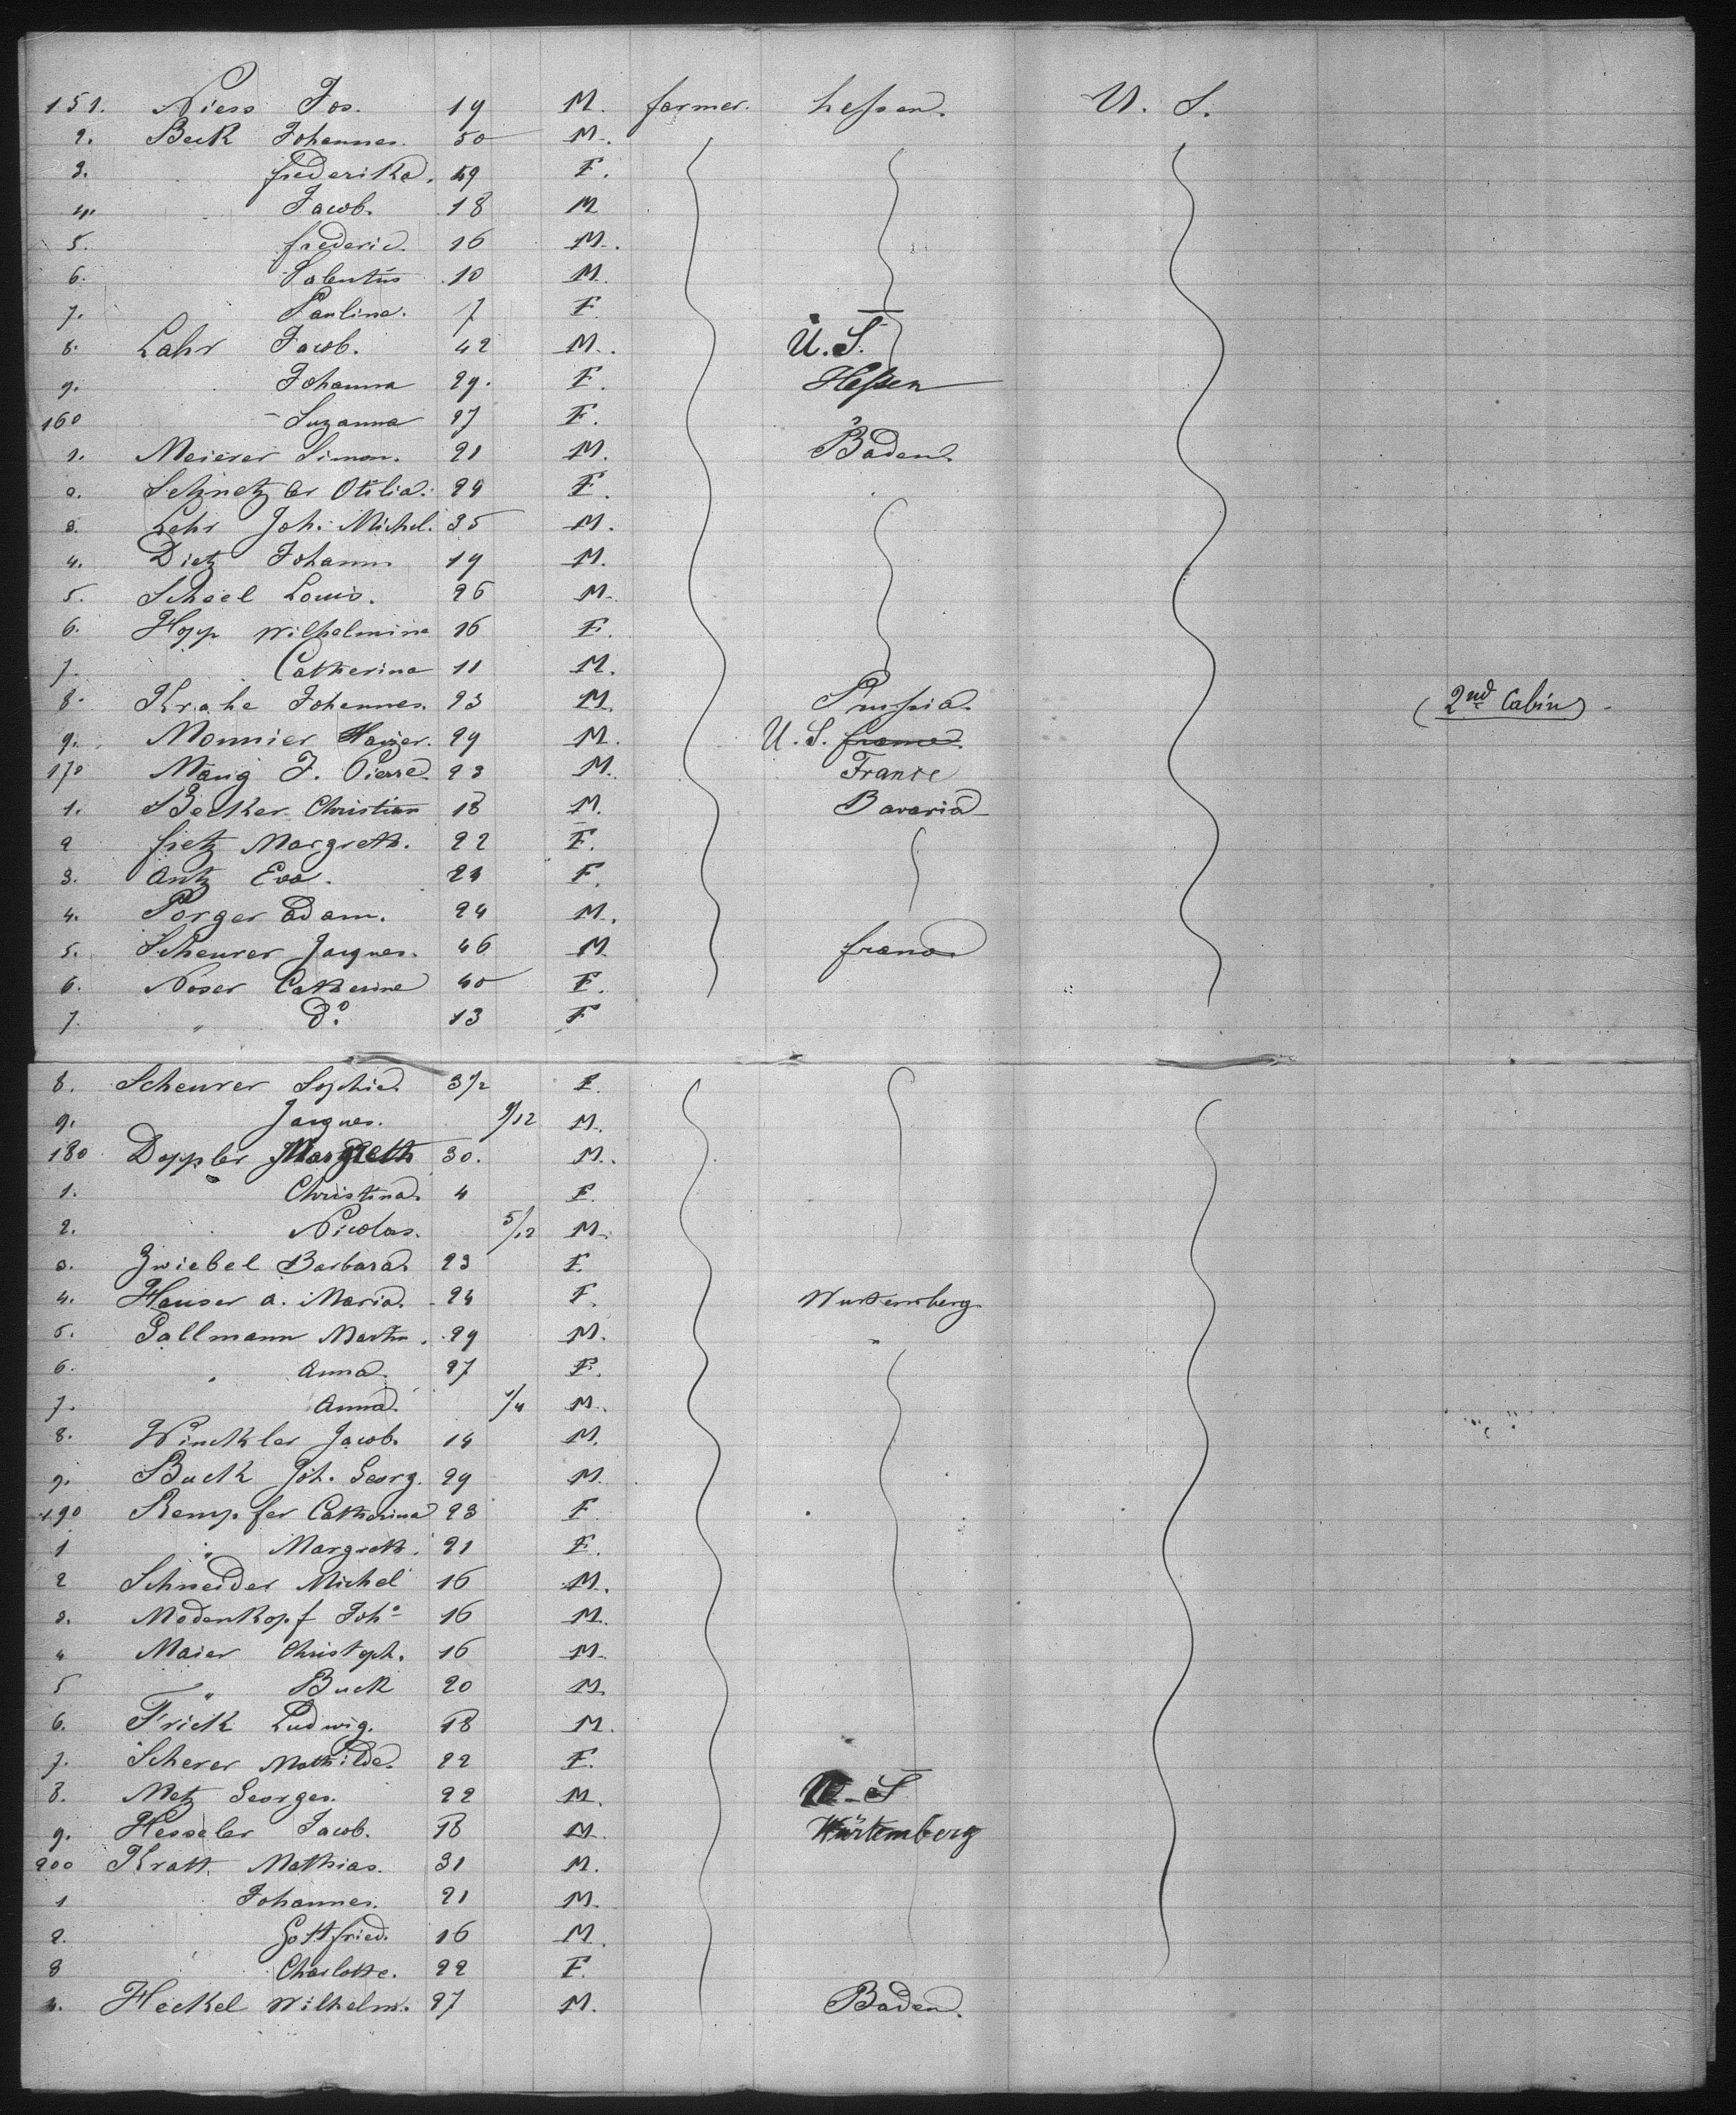 151. Niess Jos. 19 M. farmer. hessen. U. S.
2. Beck Johannes. 50 M.
3. frederika. 49 F.
4. Jacob. 18 M
5. frederic. 16 M.
6. 10 M.
7. Paulina. 7 F.
8. Lahr Jacob. 42 M. U. S.
9. Johanna 29. F. Hessen
160 Suzanna 27 F.
1. Meierer Simon. 21 M. Baden.
2. Schnetzler Otilia. 24 F.
3. Lehr Joh. Michel. 35 M.
4. Dietz Johann 19 M.
5. Scheel Louis. 26 M.
6. Hopp Wilhelmine 16 F.
7. Catherina 11 M.
8. Krahe Johannes. 23 M. Prussia. (2nd Cabin)
9. Monnier 29 M. U. S. france.
170 J. Pierre. 23 M. France
1. Becker Christian 18 M. Bavaria
2 fietz Margreth. 22 F.
3. Antz Eva. 21 F.
4. Porger Adam. 24 M.
5. Scheurer Jacques. 46 M. france
6. Noser Catherine 40 F.
7. " Do. 13 F
8. Scheurer Sophie. 3 1/2 F.
9. Jacques. 9/12 M.
180 Doppler Margreth 30. M.
1. Christina. 4 F.
2. Nicolas. 5/12 M.
3. Zwiebel Barbara 23 F.
4. Hauser a. Maria. 24 F. Wurtemberg
5. Gallmann Martin. 29 M. "
6. " Anna. 27 F.
7. Anna. 1/4 M.
8. Winckler Jacob. 14 M.
9. Buck Joh. Georg. 29 M.
190 Kempfer Catharina 23 F.
1 " Margreth. 21 F.
2 Schneider Michel 16 M.
3. Modenkopf Joho 16 M.
4 Maier Christoph. 16 M.
5 " Buck 20 M.
6. Frick Ludwig. 18 M.
7. Scherer Mathilde. 22 F.
8. Metz Georges. 22 M. U. S
9. Hesseler Jacob. 18 M. Würtemberg
200 Kratt Mathias. 31 M.
1 Johannes. 21 M.
2. Gottfried. 16 M.
3 Charlotte. 22 F.
4. Heckel Wilhelm. 27 M. Baden.